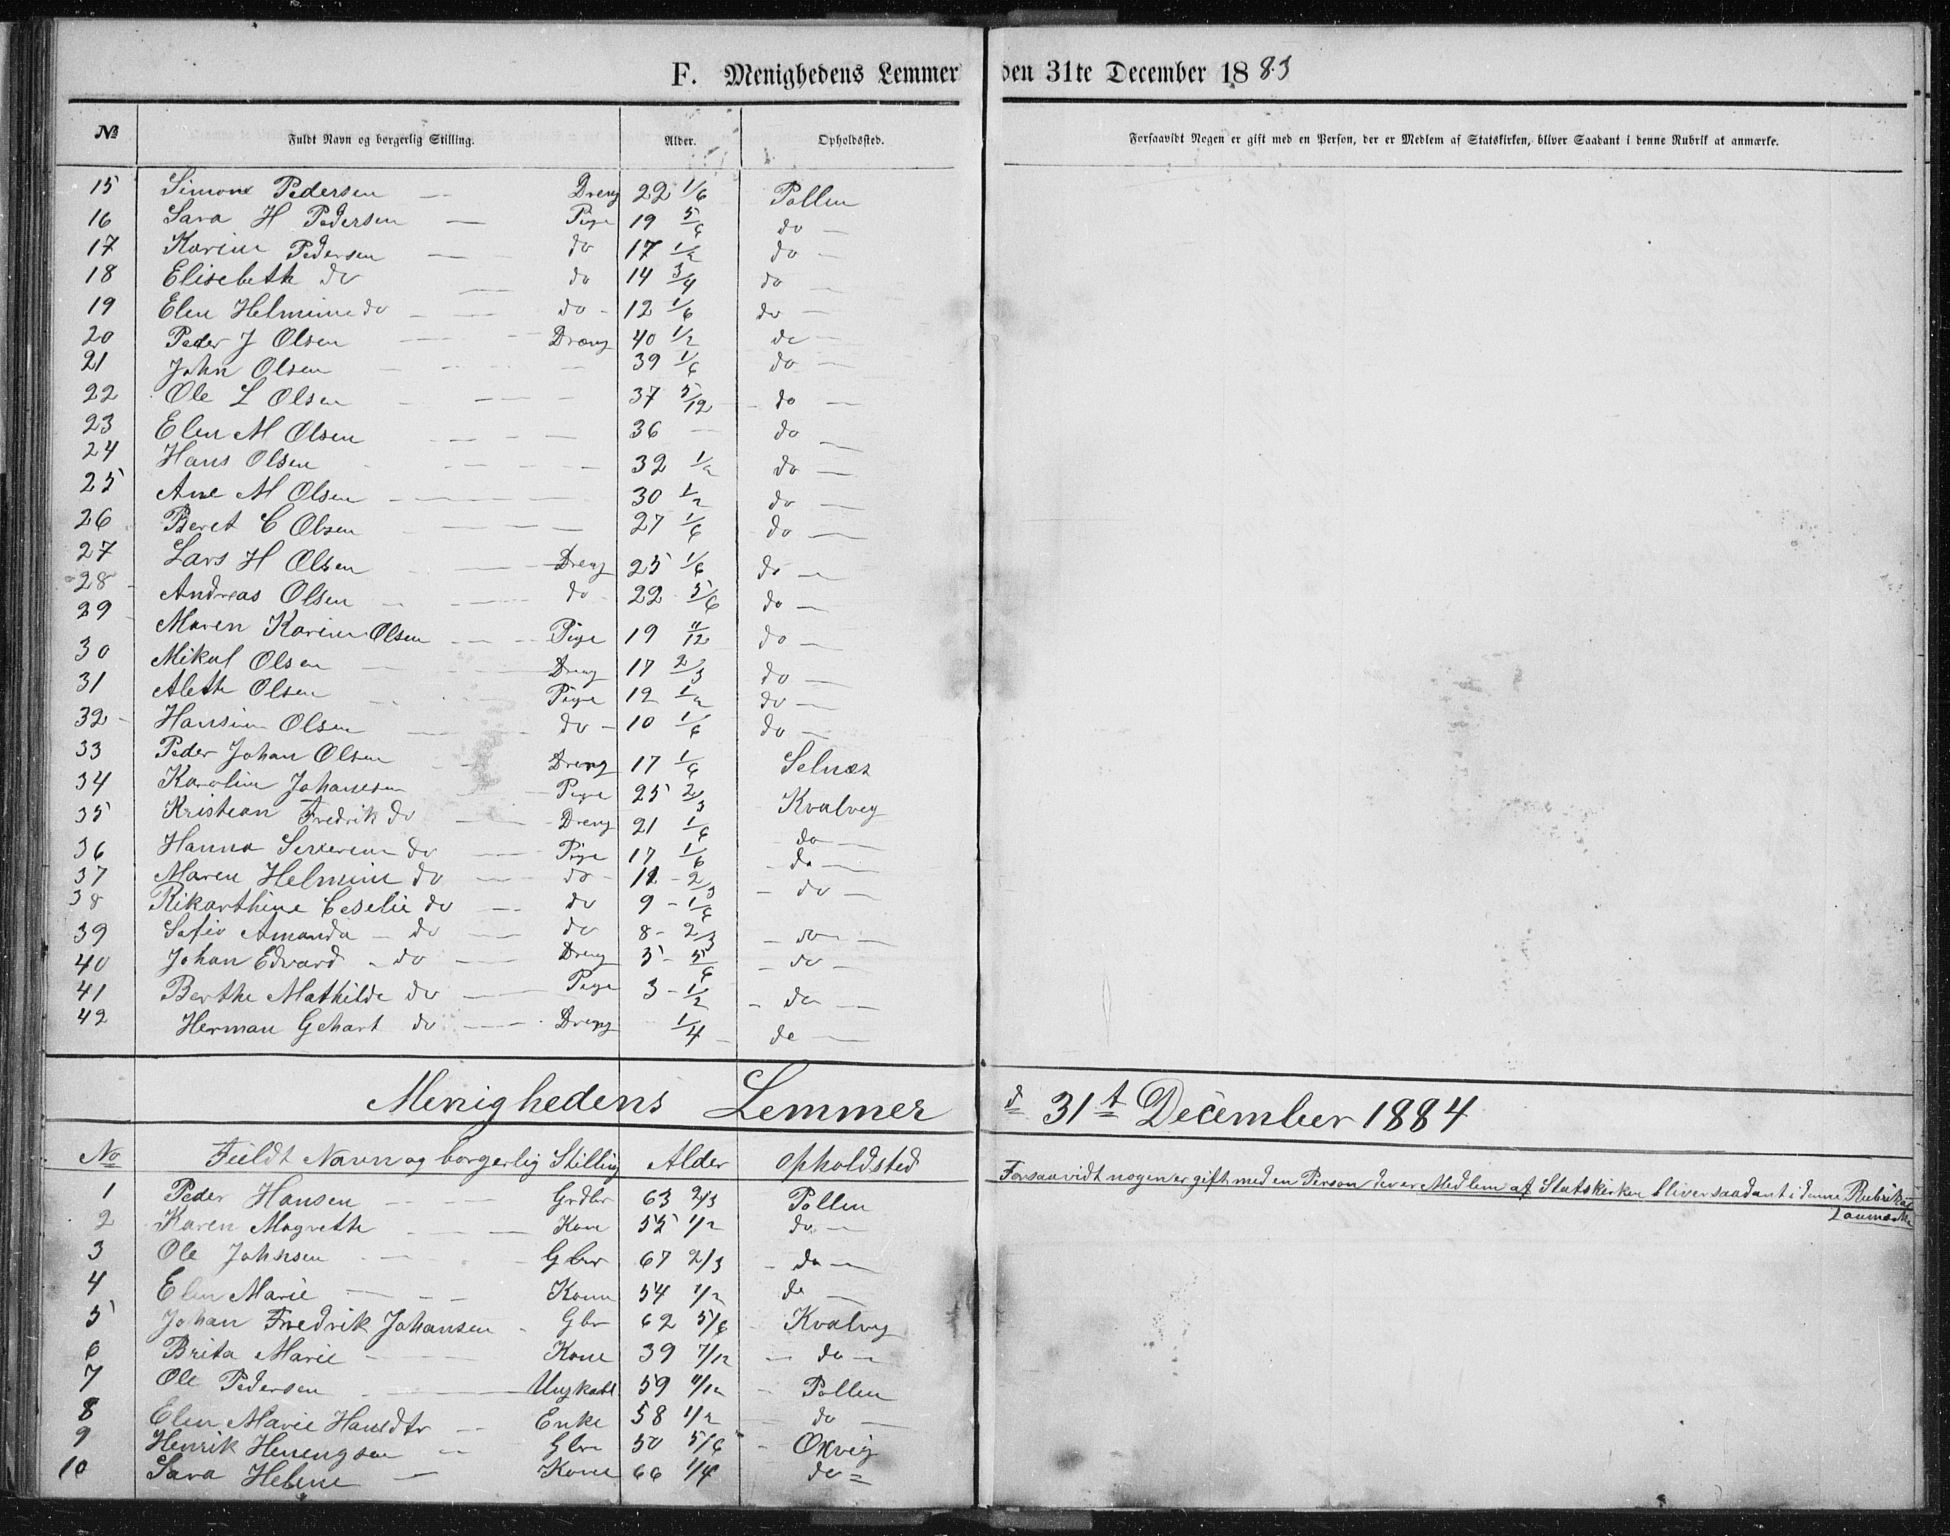 F. Menighedens Lemmer den 31te December 1883
№ Fuldt Navn og borgerlig Stilling. Alder. Opholdssted. Forsaavidt Nogen er gift med en Person, der er Medlem af Statskirken, bliver Saadant i denne Rubrik at anmærke.
15 Simon Pedersen — Dreng 22 1/6 Pollen
16 Sara H Pedersen — Pige 19 5/6 do —
17 Karin Pedersen — do 17 1/2 do —
18 Elisebeth do — do 14 3/4 do —
19 Elen Helmine do — do - 12 1/6 do —
20 Peder J Olsen — Dreng 40 1/2 do —
21 John Olsen — 39 1/6 do —
22 Ole L Olsen — 37 5/12 - do —
23 Elen M Olsen — 36 — do —
24 Hans Olsen — 32 1/2 do —
25 Ane M Olsen — 30 1/2 do —
26 Beret C Olsen — 27 1/6 do —
27 Lars H Olsen — Dreng 25 1/6 do —
28 Andreas Olsen — do - 22 5/6 do —
29 Maren Karin Olsen — Pige 19 11/12 do —
30 Mikal Olsen — Dreng 17 2/3 do —
31 Aleth Olsen — Pige 12 1/2 do —
32 - Hansine Olsen — do - 10 1/6 do —
33 Peder Johan Olsen — Dreng 17 1/6 Selnæs
34 Karoline Johansen — Pige 25 2/3 Kvalvig
35 Kristean Fredrik do — Dreng 21 1/6 do —
36 Hanna do — Pige 17 1/6 - do —
37 Maren Helmine do — do - 11 - 2/3 - do —
38 Rikarthine Ceselie do — do 9 - 1/6
39 Sofie Amanda - do — do 8 - 2/3 - do —
40 Johan Edvard - do — Dreng 5 - 5/6 - do -
41 Berthe Mathilde do — Pige 3 - 1/2 - do —
42 Herman Gehart do — Dreng 1/4 - do —
Menighedens Lemmer d 31t December 1884
No Fuldt Navn og borgerlig Stilling Alder Opholdsted Forsaavidt nogen er gift med en Person der er Medlem af Statskirken bliver saadant i denne Rubrik at
anmærke
1 Peder Hansen — Grdbr 63 2/3 Pollen
2 Karen Magrethe — Kone 55 1/2 do —
3 Ole Johnsen — Gbr 67 2/3 - do —
4 Elen Marie — Kone 54 1/2 do —
5 Johan Fredrik Johansen - Gbr 62 5/6 - Kvalvig
6 Brita Marie — Kone 39 7/12 — do —
7 Ole Pedersen — Ungkarl 59 11/12 - Pollen
8 Elen Marie Hansdtr — Enke 58 1/2 — do —
9 Henrik Henengsen — Gbr 50 5/6 - Oxvig
10 Sara Helene — Kone 66 1/4 do =